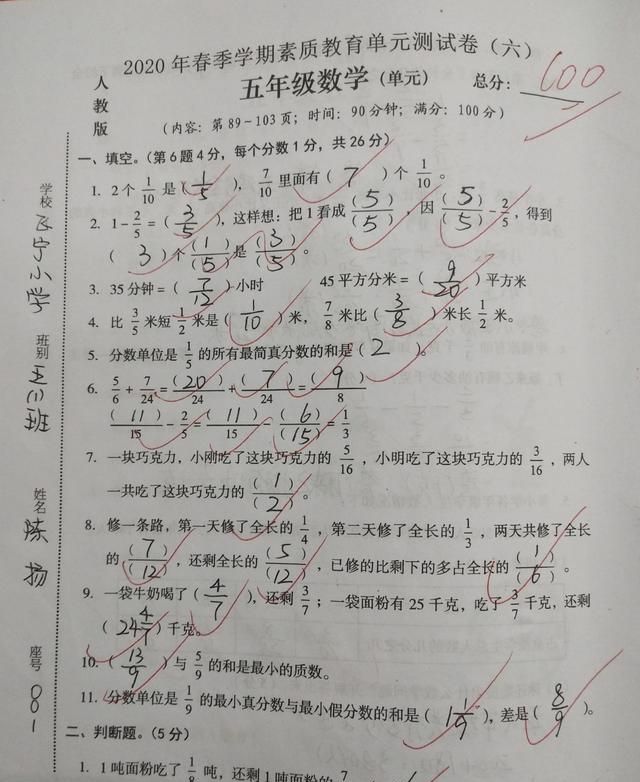 2020年春季学期素质教育单元测试卷（六）
人教版
五年级数学（单元）
总分：100
（内容：第89-103页；时间：90分钟；满分：100分）
学校
小学
班别 五(1)班
姓名 陈扬
座号 081
一、填空。（第6题4分，每个分数1分，共26分）
1. 2个1/10是（1/5），7/10里面有（7）个1/10。
2. 1-2/5=（3/5），这样想：把1看成(5)/(5)，因(5)/(5)-2/5，得到
（3）个(1)/(5)是(3)/(5)。
3. 35分钟=（7/12）小时 45平方分米=（9/20）平方米
4. 比3/5米短1/2米是（1/10）米，7/8米比（3/8）米长1/2米。
5. 分数单位是1/5的所有最简真分数的和是（2）。
6. 5/6+7/24=(20)/24+(7)/24=(9)/8
(11)/15-2/5=(11)/15-(6)/(15)=1/3
7. 一块巧克力，小刚吃了这块巧克力的5/16，小明吃了这块巧克力的3/16，两人
一共吃了这块巧克力的(1)/(2)。
8. 修一条路，第一天修了全长的1/4，第二天修了全长的1/3，两天共修了全长
的(7)/(12)，还剩全长的(5)/(12)，已修的比剩下的多占全长的(1)/(6)。
9. 一袋牛奶喝了（4/7），还剩3/7；一袋面粉有25千克，吃了3/7千克，还剩
（24 4/7）千克。
10.（13/9）与5/9的和是最小的质数。
11. 分数单位是1/9的最小真分数与最小假分数的和是（1 1/9），差是（8/9）。
二、判断题。（5分）
1. 1吨面粉吃了1/8吨，还剩1吨面粉的7/